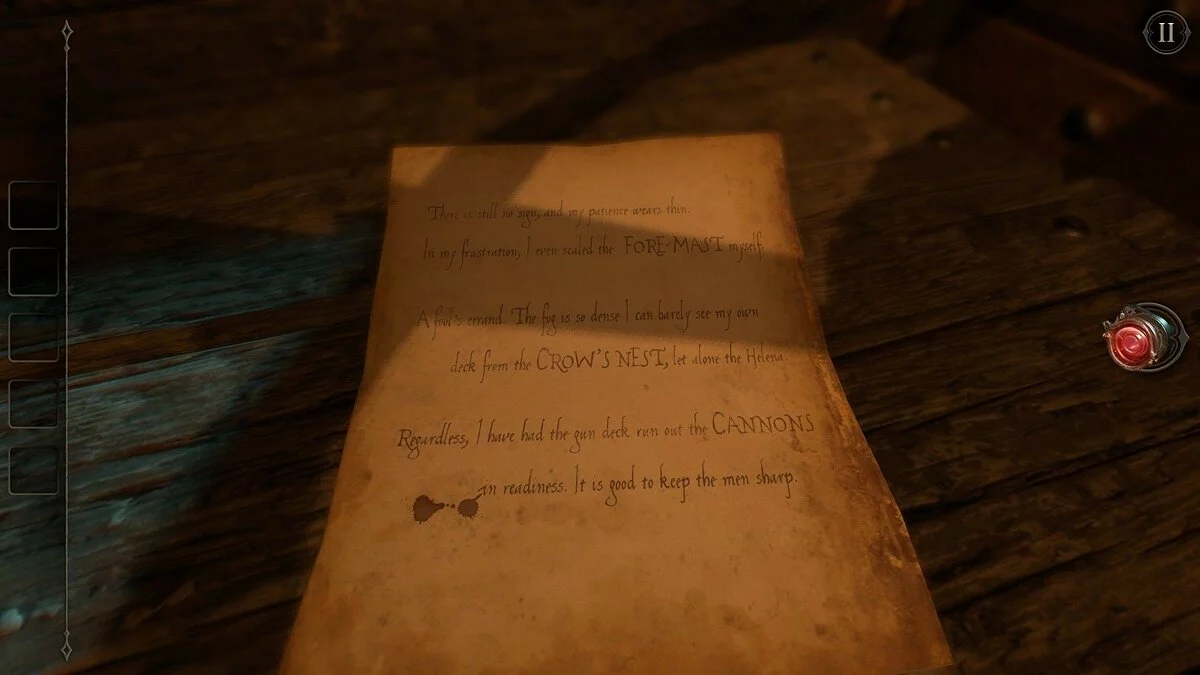 II
There is still no sign, and my patience wears thin.
In my frustration, I even scaled the FORE-MAST myself.
A fool's errand. The fog is so dense I can barely see my own
deck from the CROW'S NEST, let alone the Helena.
Regardless, I have had the gun deck run out the CANNONS
in readiness. It is good to keep the men sharp.